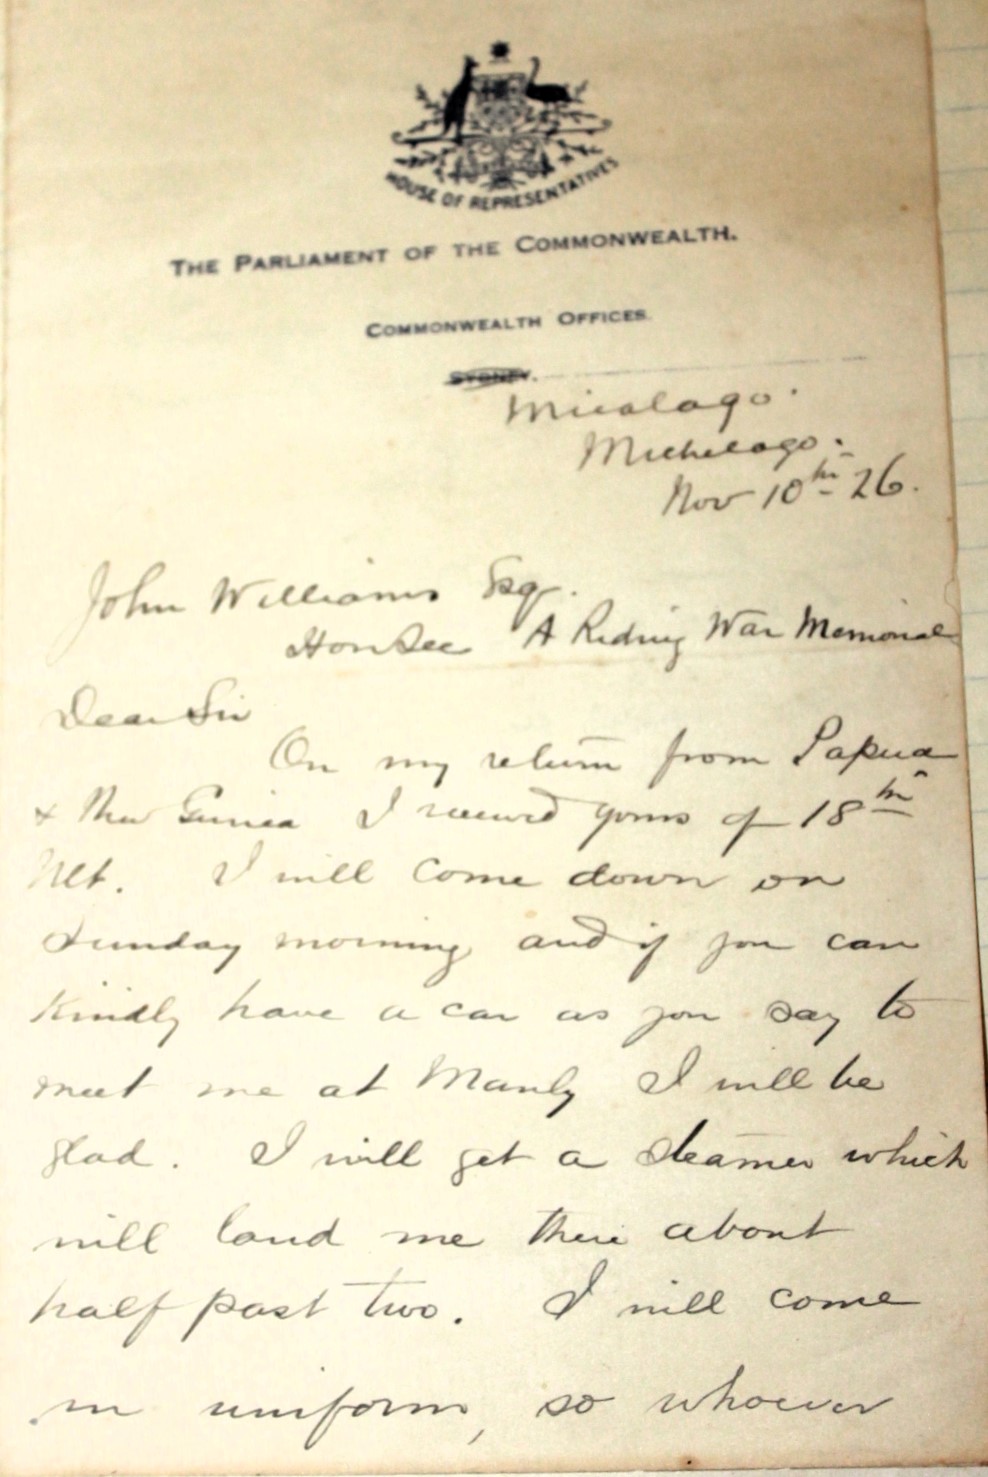 HOUSE OF REPRESENTATIVES
THE PARLIAMENT OF THE COMMONWEALTH.
COMMONWEALTH OFFICES.
SYDNEY.
Micalago.
Michelago.
Nov 10th 26.
John Williams Esq.
Hon Sec A Riding War Memorial
Dear Sir
On my return from Papua
& New Guinea I received yours of 18th
Ult. I will come down on
Sunday morning and if you can
kindly have a car as you say to
meet me at Manly I will be
glad. I will get a steamer which
will land me there about
half past two. I will come
in uniform, so whoever